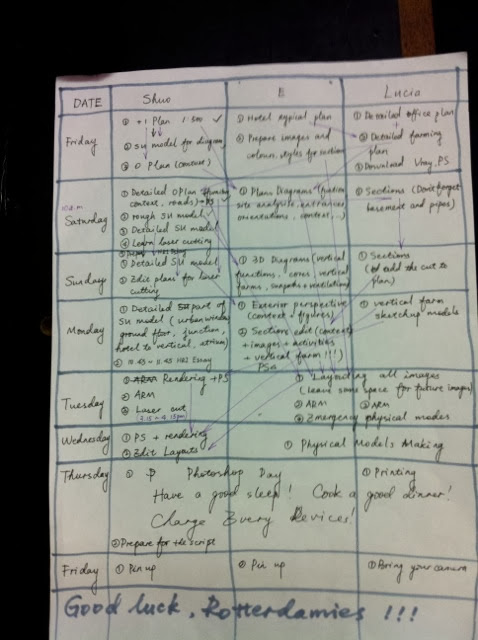 DATE Shuo E Lucia
Friday
① +1 Plan 1:500 ✓
② SU model for diagram
③ 0 Plan (context)
① Hotel typical plan
② Prepare images and
colour, styles for section
① Detailed office plan
② Detailed farming
plan
③ Download Vray, PS
Saturday
① Detailed 0 Plan
context, roads) + PS
② rough SU model ✓
③ Detailed SU model
④ Learn laser cutting
① Plans Diagrams (function
site analysis, entrances
orientations, context, ...)
① Sections (Don't forget
basement and pipes)
Sunday
① Detailed SU model
② Edit plans for laser
cutting
① 3D Diagrams (vertical
functions, cores, vertical
farms, sunpaths + ventilation)
① Sections
(to add the cut to
plan)
Monday
① Detailed part of
SU model (urban window
ground floor, junction,
hotel to vertical, atrium)
② 10.45 - 11.45 Essay
① Exterior perspective
(context + figures)
② Sections edit (context)
+ images + activities
+ vertical farm !!!)
PS
① vertical farm
sketchup models
Tuesday
① Rendering + PS
② ARM
③ Laser cut
① Layouting all images
(leave some space for future images)
② ARM ② ARM
③ Emergency physical modes
Wednesday
① PS + rendering
② Edit Layouts
① Physical Models Making
Thursday
① P Photoshop Day ① Printing
Have a good sleep! Cook a good dinner!
Charge Every Devices!
② Prepare for the script
Friday ① Pin up ① Pin up ① Bring your camera
Good luck, Rotterdamies !!!